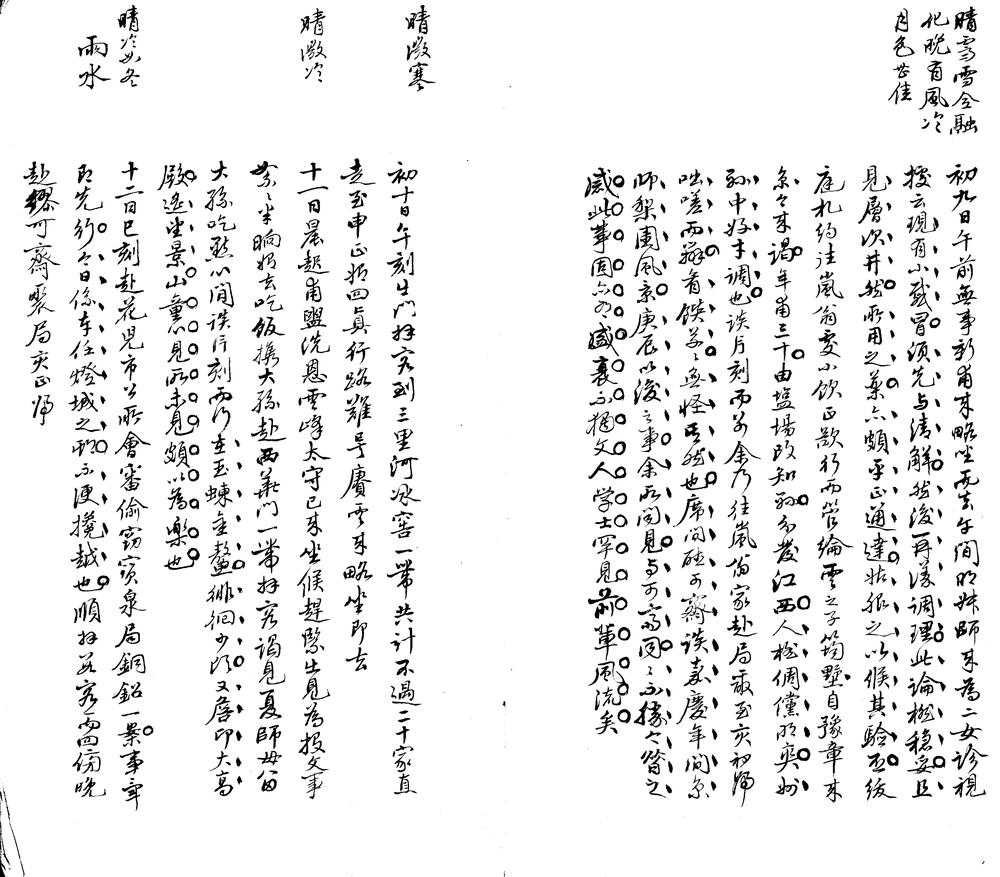 晴雪雪全融
化晚有風冷
月色甚佳
初九日午前無事新甫來略坐而去午間明姝師來為二女診視
據云現有小感冒須先與清解然後再議調理此論極穩妥且
見層次井然所用之藥亦頗平正通達姑服之以候其驗否後
庭札約往嵐翁處小飲正欲行而管綸雲之子筠墅自豫章來
京來謁年甫三十由鹽場改知縣分發江西人極倜儻明爽州
縣中好才調也談片刻而别余乃往嵐翁家赴局最至亥初歸
咄嗟而辦肴饌草草無怪其然也席間硅可齋談嘉慶年間京
師梨園風氣庚辰以後之事余所聞見与可齋同之亦勝今昔之
感此事固亦有盛衰而獨文人學士罕見前輩風流矣
晴微寒
初十日午刻出門拜客到三里河冰窖一帶共計不過二十家直
走至申正始回真行路難号賡雲來略坐即去
晴微冷
十一日晨起甫盥洗恩雲峰太守已來坐候趕緊出見為投文事
絮絮半晌始去吃飯攜大孫赴西華門一帶拜客謁見夏師母留
大孫吃點心閒談片刻而行至玉蝀金鰲徘徊少頃又落印大高
殿遙望景山童心見所未見頗以為樂也
晴冷如冬
雨水
十二日巳刻赴花兒市公所會審偷竊寶泉局銅鉛一案事畢
即先行今日係本任燈城之政不便攙越也順拜數客而回傍晚
赴繆可齋襲局亥正歸